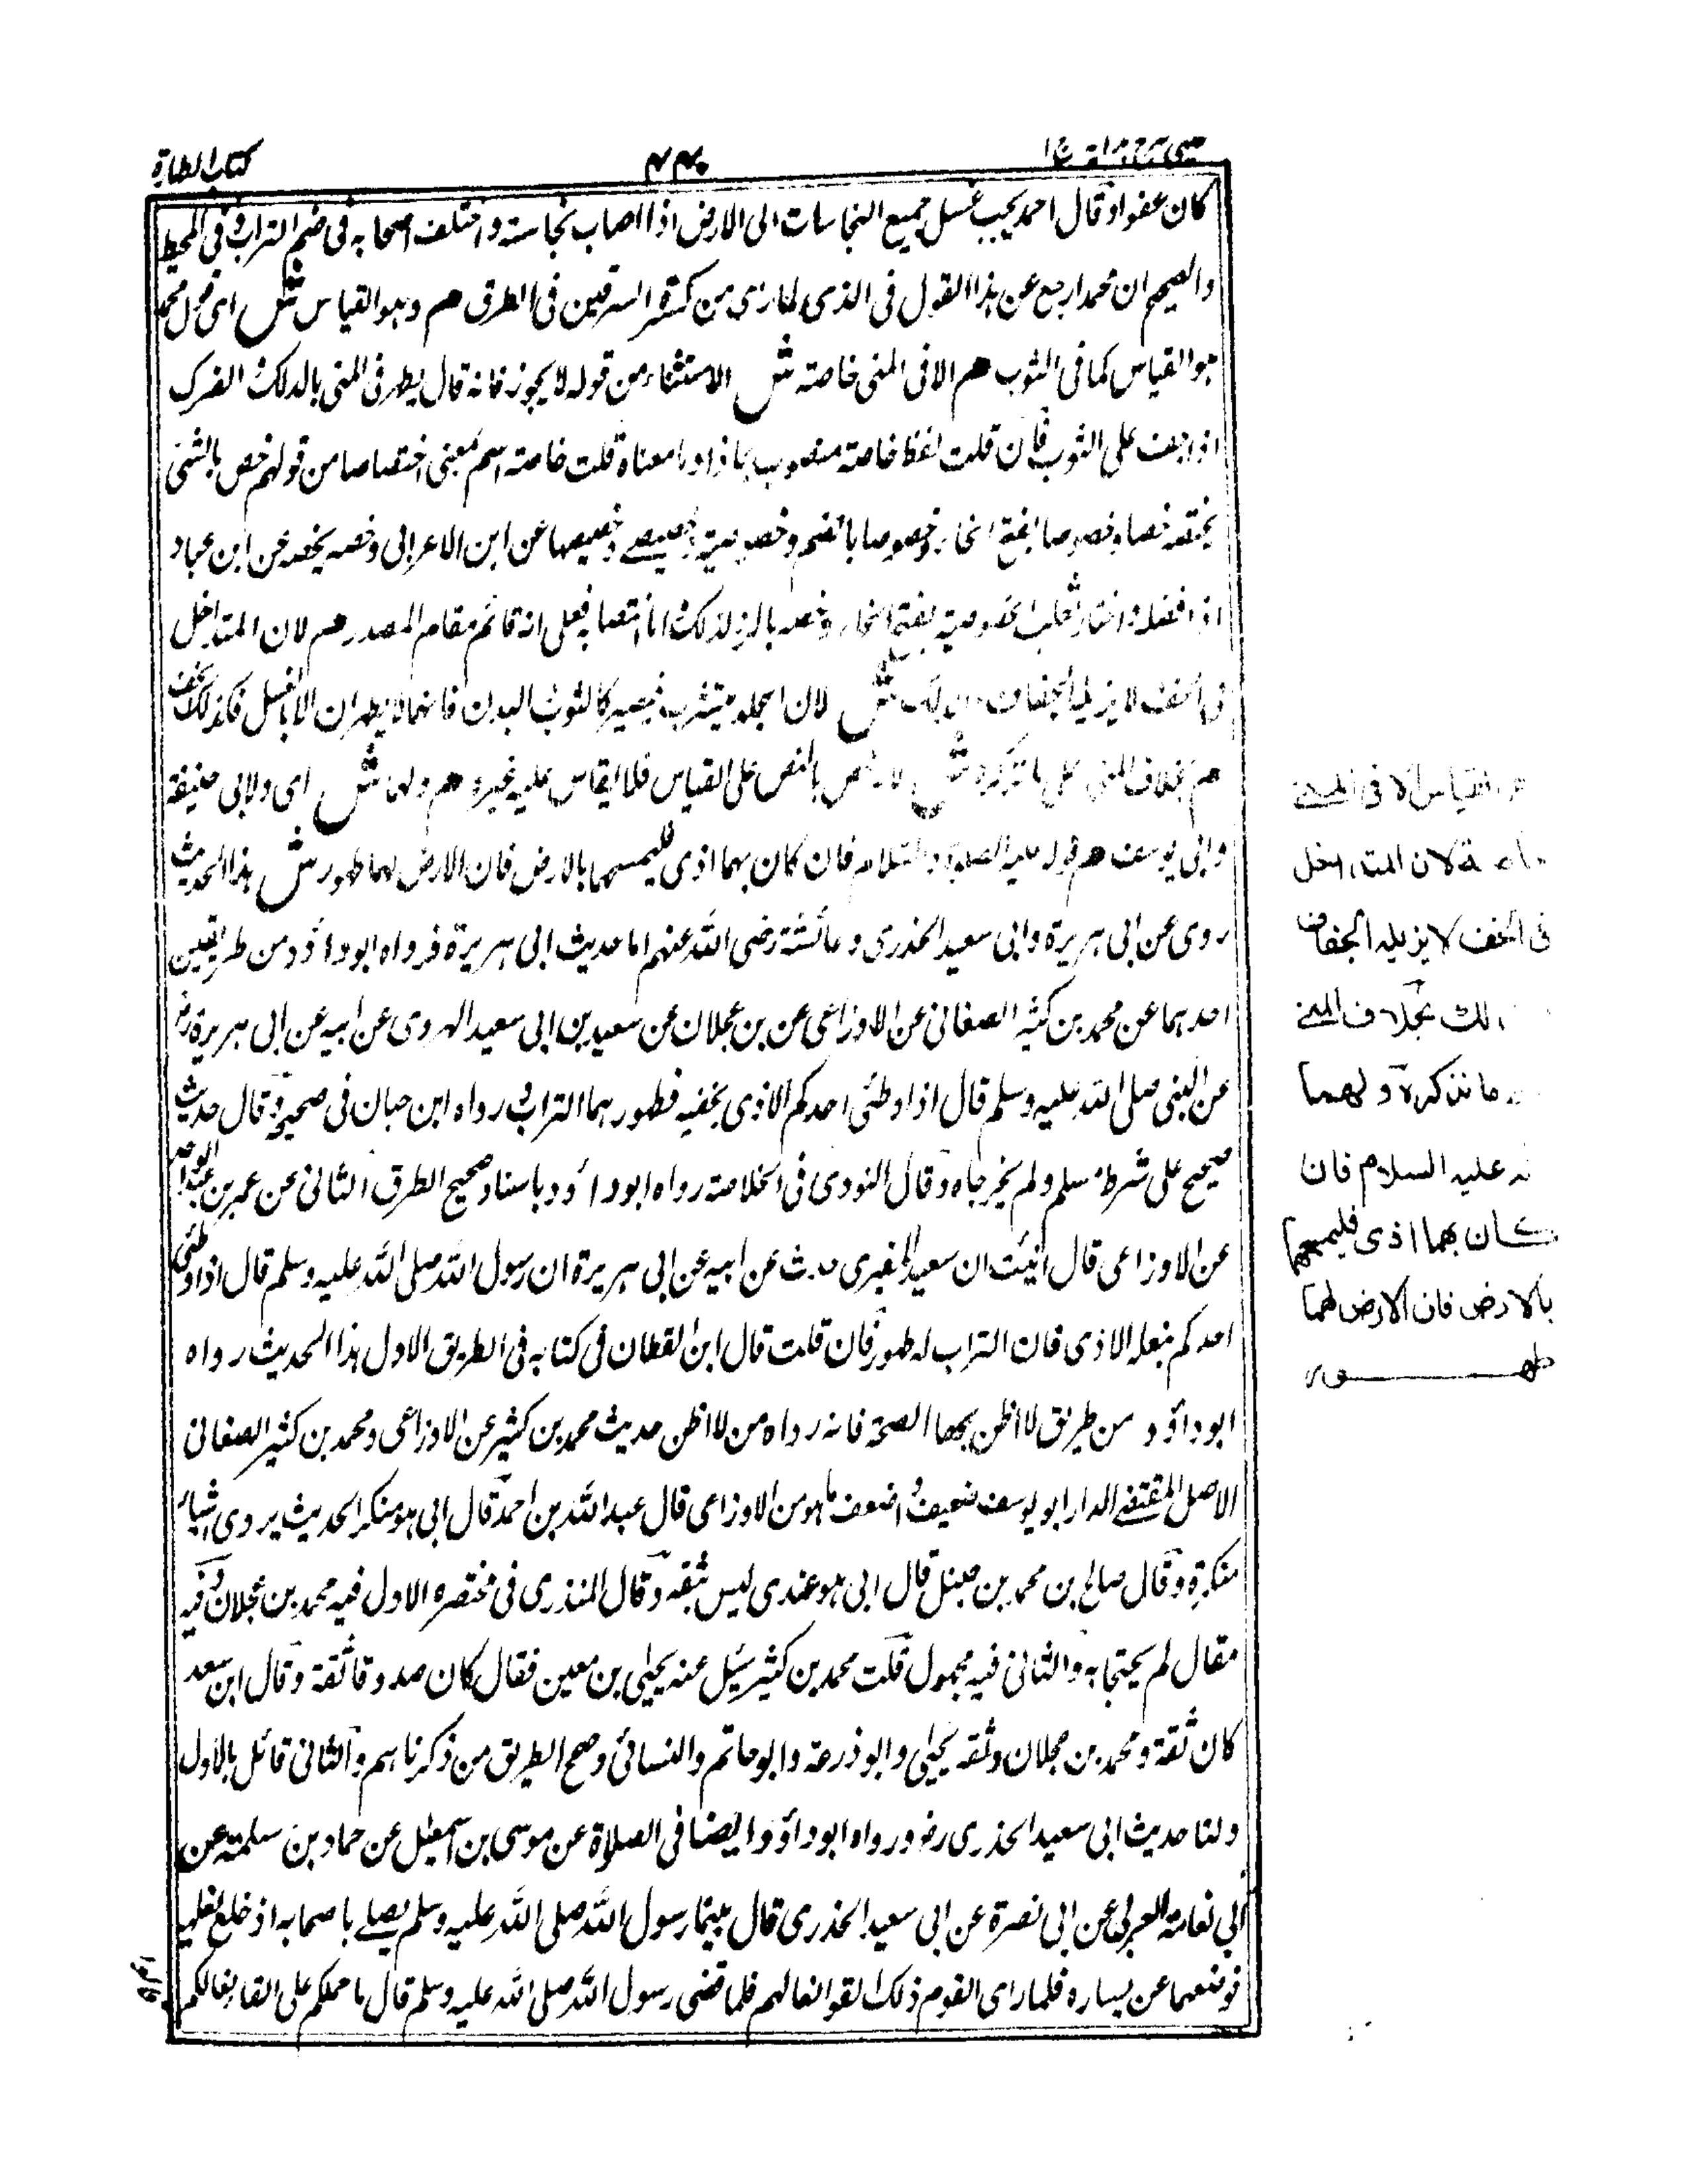 كتاب الطهارة
كان عفوا وقال احمد يجب غسل جميع النجاسات الى الارض اذا اصاب نجاسته واختلف اصحابه فى ضم التراب وفى المحيط
والصحيح ان محمدا رجع عن هذا القول فى الذى لما رأى من كثرة السرقين فى الطرق هم وهو القياس ش اى قول محمد
هو القياس كما فى الثوب هم الا فى المنى خاصة ش الاستثناء من قوله لا يجوز فانه قال يطهر فى المنى بالدلك الفرك
اذا جف على الثوب فان قلت لفظ خاصة منصوب بماذا وما معناه قلت خاصة اسم بمعنى اختصاصا من قولهم خص بالشئ
يخصه خصا وخصوصا بفتح الخاء وخصوصا بالضم وخصوصية عن ابن الاعرابى وخصه يخصه عن ابن عباد
اذا فضله واختار ثعلب خصوصية بفتح الخاء وخصه بالود كذلك اما انتصابه فعلى انه قائم مقام المصدر هم لان المتداخل
فى الخف لا يزيله الجفاف والدلك ش لان الجلد يتشرب فيصير كالثوب البدن فانهما لا يطهران الا بالغسل فكذلك الخف
هم بخلاف المنى على ما نذكره ش لانه خص بالنص على القياس فلا يقاس عليه غيره هم ولهما ش اى ولابى حنيفة
وابى يوسف هم قوله عليه الصلوة والسلام فان كان بهما اذى فليمسحهما بالارض فان الارض لهما طهور ش هذا الحديث
روى عن ابى هريرة وابى سعيد الخدرى وعائشة رضى الله عنهم اما حديث ابى هريرة فرواه ابو داؤد من طريقين
احدهما عن محمد بن كثير الصغانى عن الاوزاعى عن بن عجلان عن سعيد بن ابى سعيد الهروى عن ابيه عن ابى هريرة رض
عن النبى صلى الله عليه وسلم قال اذا وطئ احدكم الاذى بخفيه فطهورهما التراب ورواه ابن حبان فى صحيحه وقال حديث
صحيح على شرط مسلم ولم يخرجاه وقال النووى فى الخلاصة رواه ابو داؤد باسناد صحيح الطرق الثانى عن عمر بن عبد الواحد
عن الاوزاعى قال انبئت ان سعيد المقبرى حدث عن ابيه عن ابى هريرة ان رسول الله صلى الله عليه وسلم قال اذا وطئ
احدكم بنعله الاذى فان التراب له طهور فان قلت قال ابن القطان فى كتابه فى الطريق الاول هذا الحديث رواه
ابو داؤد من طريق لا اظن بها الصحة فانه رواه من لا اظن حديث محمد بن كثير عن الاوزاعى ومحمد بن كثير الصغانى
الاصل المقتضى الدار ابو يوسف ضعيف واضعف ما هو من الاوزاعى قال عبد الله بن احمد قال ابى هو منكر الحديث يروى اشياء
منكرة وقال صالح بن محمد بن حنبل قال ابى هو عندى ليس بثقه وقال المنذرى فى مختصره الاول فيه محمد بن عجلان وفيه
مقال لم يحتجا به والثانى فيه مجهول قلت محمد بن كثير سئل عنه يحيى بن معين فقال كان صدوقا ثقة وقال ابن سعد
كان ثقة ومحمد بن عجلان وثقه يحيى وابو ذرعة وابو حاتم والنسائى وصح الطريق من ذكرناهم والثانى قائل بالاول
ولنا حديث ابى سعيد الخدرى رض ورواه ابو داؤد ايضا فى الصلاة عن موسى بن اسمعيل عن حماد بن سلمة عن
ابى نعامة عن ابى نضرة عن ابى سعيد الخدرى قال بينما رسول الله صلى الله عليه وسلم يصلى باصحابه اذ خلع نعليه
فوضعهما عن يساره فلما راى القوم ذلك القوا نعالهم فلما قضى رسول الله صلى الله عليه وسلم قال ما حملكم على القاء نعالكم
قالوا
القياس الا فى المنى
خاصة لان المتداخل
فى الخف لا يزيله الجفاف
والدلك بخلاف المنى
ما نذكره ولهما
عليه السلام فان
كان بهما اذى فليمسحهما
بالارض فان الارض لهما
طهور